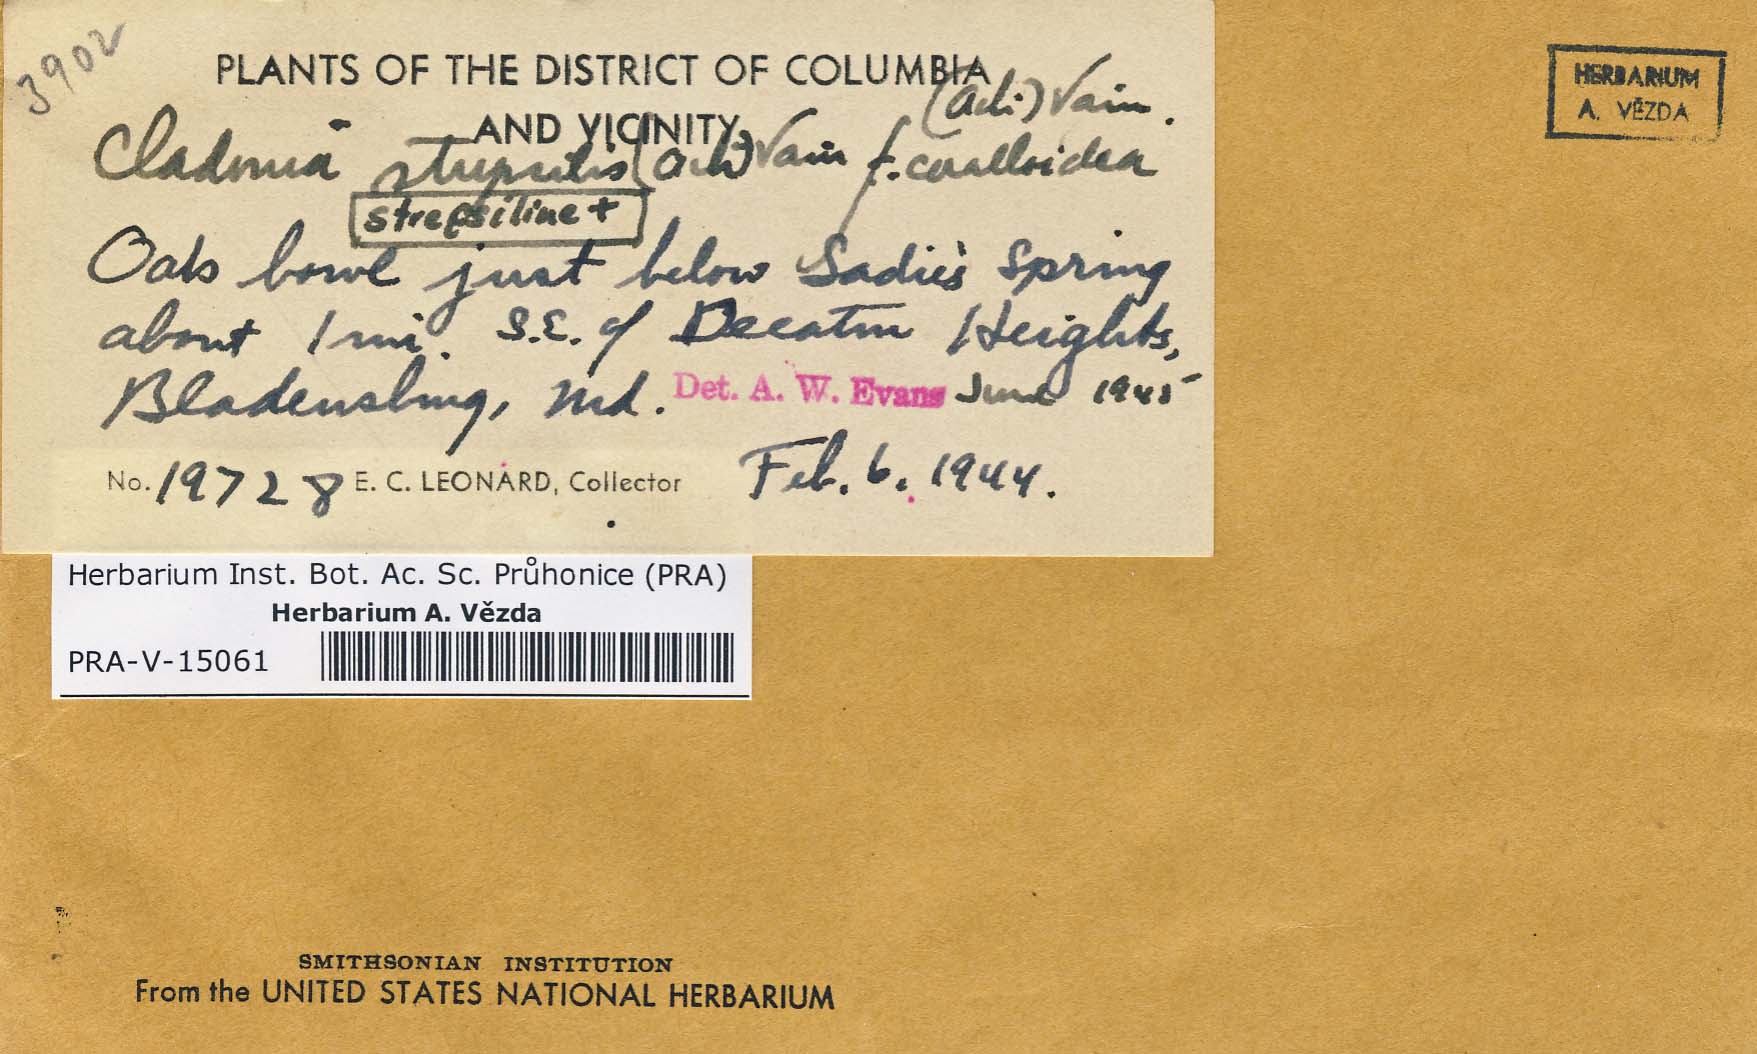 3902
HERBARIUM
A. VĚZDA
PLANTS OF THE DISTRICT OF COLUMBIA
AND VICINITY
(Ach.) Vain.
Cladonia strepsilis (Ach) Vain f. coralloidea
strepsiline +
Oak bowl just below Sadie's Spring
about 1 mi. S.E. of Decatur Heights,
Bladensburg, Md. Det. A. W. Evans June 1945
No. 19728 E. C. LEONARD, Collector Feb. 6, 1944.
Herbarium Inst. Bot. Ac. Sc. Průhonice (PRA)
Herbarium A. Vězda
PRA-V-15061
SMITHSONIAN INSTITUTION
From the UNITED STATES NATIONAL HERBARIUM